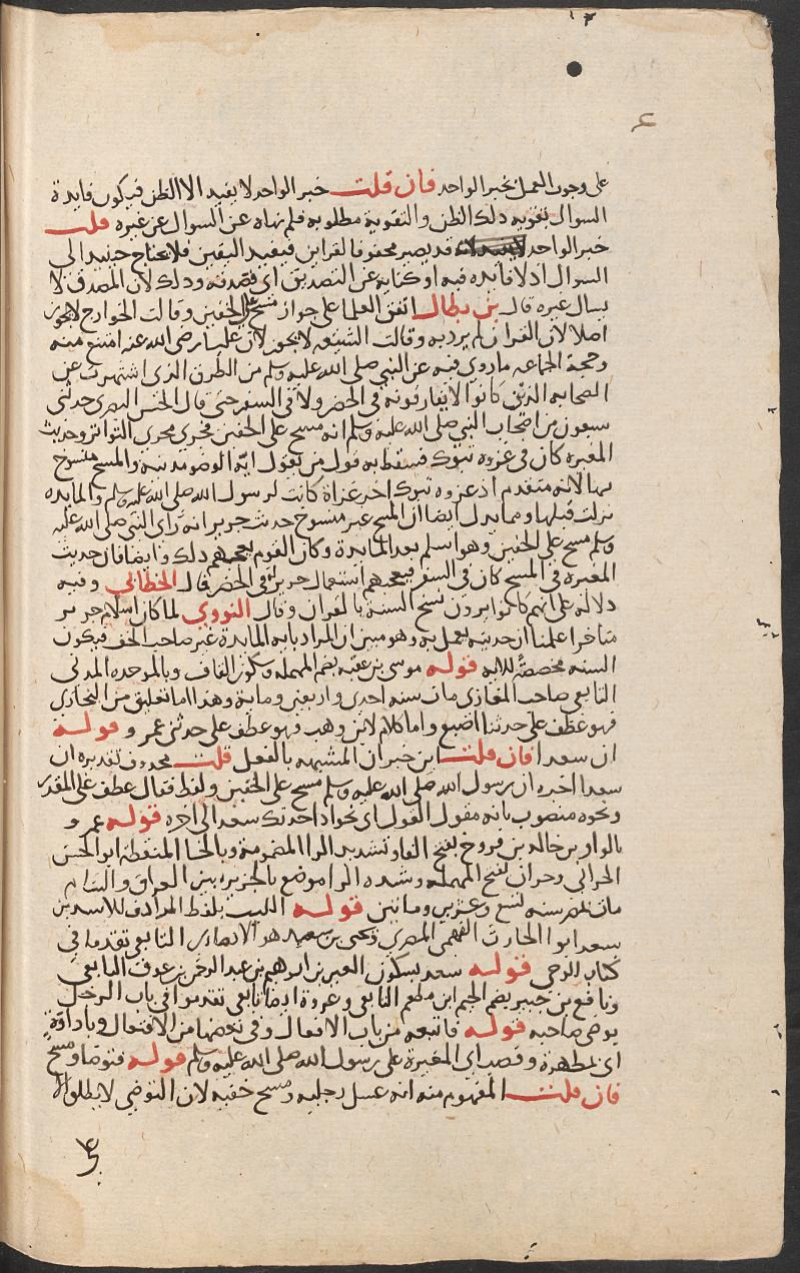 ع
على وجوب العمل بخبر الواحد فان قلت خبر الواحد لا يفيد الا الظن فيكون فايدة
السوال تقويه ذلك الظن والتقوية مطلوبه فلم نهاه عن السوال عن غيره قلت
خبر الواحد قد يصير محفوفا لقراين فيفيد اليقين فلا يحتاج حينيد الى
السوال اذ لا فايده فيه او كنايه عن التصديق اي فصدقه وذلك لان المصدق لا
يسال غيره قال بن بطال اتفق العلما على جواز مسح على الخفين وقالت الخوارج لا يجوز
اصلا لان القران لم يرد به وقالت الشيعه لا يجوز لان عليا رضى الله عنه امتنع منه
وحجة الجماعه ما روي فيه عن النبي صلى الله عليه وسلم من الطرق الذى اشتهرت عن
الصحابه الذين كانوا لا يفارقونه في الحضر ولا في السفر حتى قال الحسن البصرى حدثنى
سبعون من اصحاب النبي صلى الله عليه وسلم انه مسح على الخفين فجرى مجرى التواتر وحديث
المغيره كان في غزوه تبوك فسقط به قول من يقول ايه الوضو مدنيه والمسح منسوخ
بها لانه متقدم اذ غزوه تبوك اخر غزاة كانت لرسول الله صلى الله عليه وسلم والمايده
نزلت قبلها ومما يدل ايضا ان المسح غير منسوخ حديث جرير انه راى النبي صلى الله عليه
وسلم مسح على الخفين وهو اسلم بعد المايدة وكان القوم يعجبهم ذلك وايضا فان حديث
المغيره في المسح كان في السفر فيعجبهم استعمال جرير له في الحضر قال الخطابي وفيه
دلاله على انهم كانوا يرون نسخ السنة بالقران وقال النووي لما كان اسلام جرير
متاخرا علمنا ان حديثه يعمل به وهو مبين ان المراد بايه المايدة غير صاحب الخف فيكون
السنه مخصصة للايه قوله موسى بن عقبه بضم المهمله وسكون القاف وبالموحده المدنى
التابعى صاحب المغازى مات سنه احدى واربعين وماية وهذا اما تعليق من البخارى
فهو عطف على حدثنا اصبغ واما كلام لابن وهب فهو عطف على حدثنى عمر و قوله
ان سعدا فان قلت اين خبر ان المشبهه بالفعل قلت محدوف تقديره ان
سعدا اخبره ان رسول الله صلى الله عليه وسلم مسح على الخفين ولفظ فقال عطف على المقدر
ونحوه منصوب بانه مقول القول اى نحو اذا حدثك سعد الى اخره قوله عمر و
بالواو بن خالد بن فروخ بفتح الفا وتشديد الرا المضمومة وبالخا المنقطه ابو الحسن
الحرانى وحران بفتح المهمله وشده الرا موضع بالجزيره بين العراق والشام
مات بمصر سنه تسع وعشرين وماتين قوله الليث بلفظ المرادف للاسد بن
سعد ابو الحارث الفهمى المصرى ويحيى بن سعيد هو الانصارى التابعى تقدما في
كتاب الوحى قوله سعد بسكون العين بن ابراهيم بن عبد الرحمن بن عوف التابعى
ونافع بن جبير بضم الجيم ابن مطعم التابعى وعروة ايضا تابعى تقدموا في باب الرجل
يوضى صاحبه قوله فاتبعه من باب الافعال وفى بعضها من الافتعال وباداوة
اى بمطهرة وقصد اى المغيرة على رسول الله صلى الله عليه وسلم قوله فتوضا ومسح
فان قلت المفهوم منه انه غسل رجليه ومسح خفيه لان التوضى لا يطلق الا